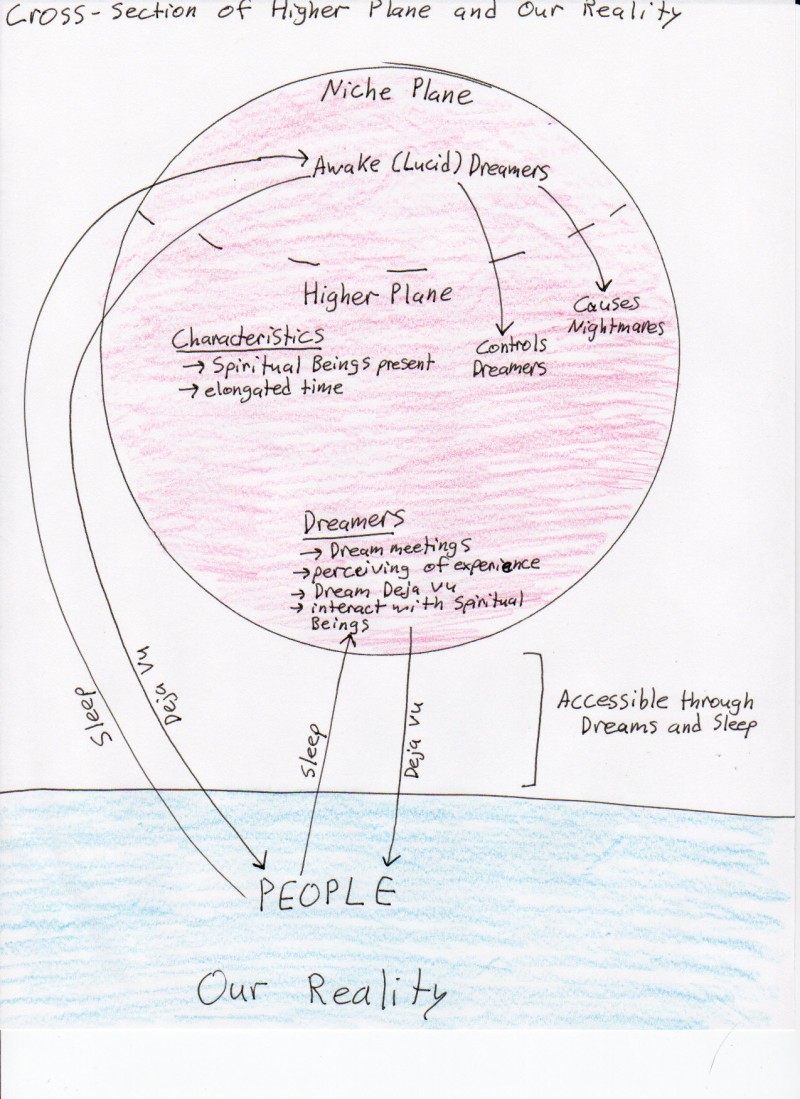 Cross-Section of Higher Plane and Our Reality
Niche Plane
Awake (Lucid) Dreamers
Higher Plane
Causes
Nightmares
Controls
Dreamers
Characteristics
→ Spiritual Beings present
→ elongated time
Dreamers
→ Dream meetings
→ perceiving of experience
→ Dream Deja Vu
→ interact with Spiritual
Beings
Sleep
Deja Vu
Sleep
Deja Vu
Accessible through
Dreams and Sleep
PEOPLE
Our Reality